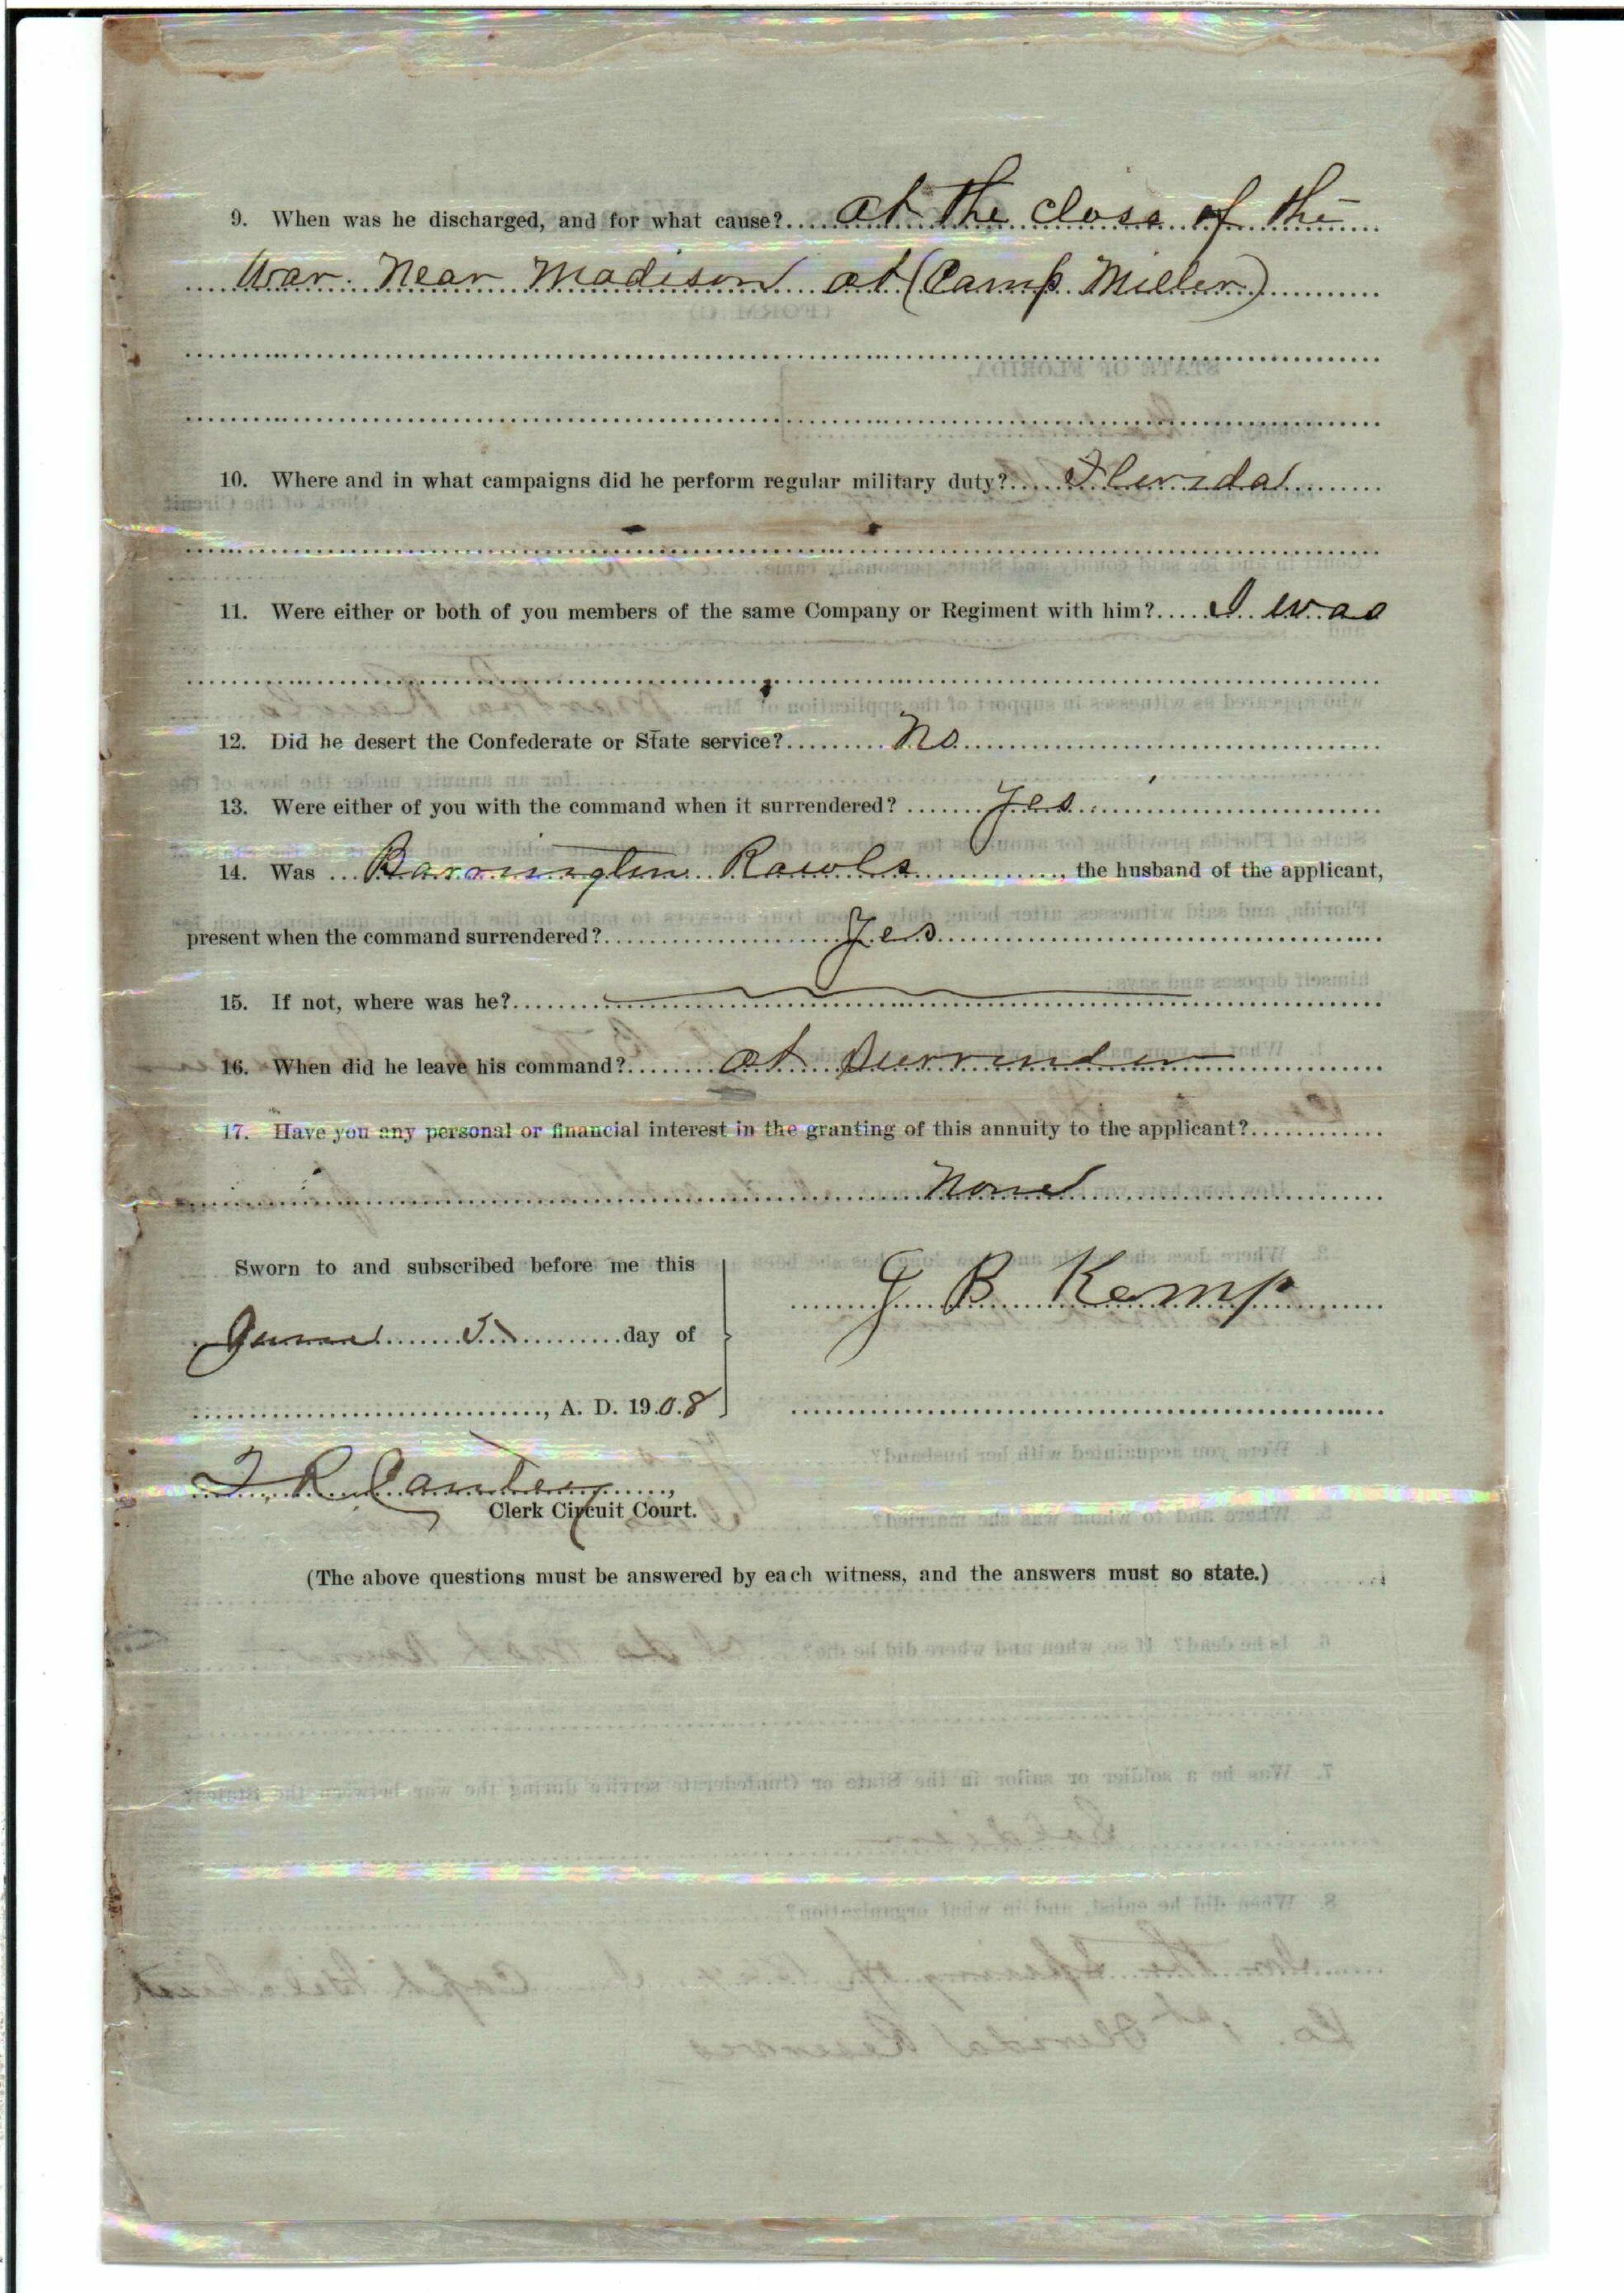 9. When was he discharged, and for what cause? at the close of the
war near Madison at (Camp Miller)
10. Where and in what campaigns did he perform regular military duty? Florida
11. Were either or both of you members of the same Company or Regiment with him? I was
12. Did he desert the Confederate or State service? No
13. Were either of you with the command when it surrendered? Yes
14. Was Barrington Rawls, the husband of the applicant,
present when the command surrendered? Yes
15. If not, where was he?
16. When did he leave his command? at Surrender
17. Have you any personal or financial interest in the granting of this annuity to the applicant?
None
Sworn to and subscribed before me this
June 5 day of
J B Kemp
, A. D. 1908
T R
Clerk Circuit Court.
(The above questions must be answered by each witness, and the answers must so state.)